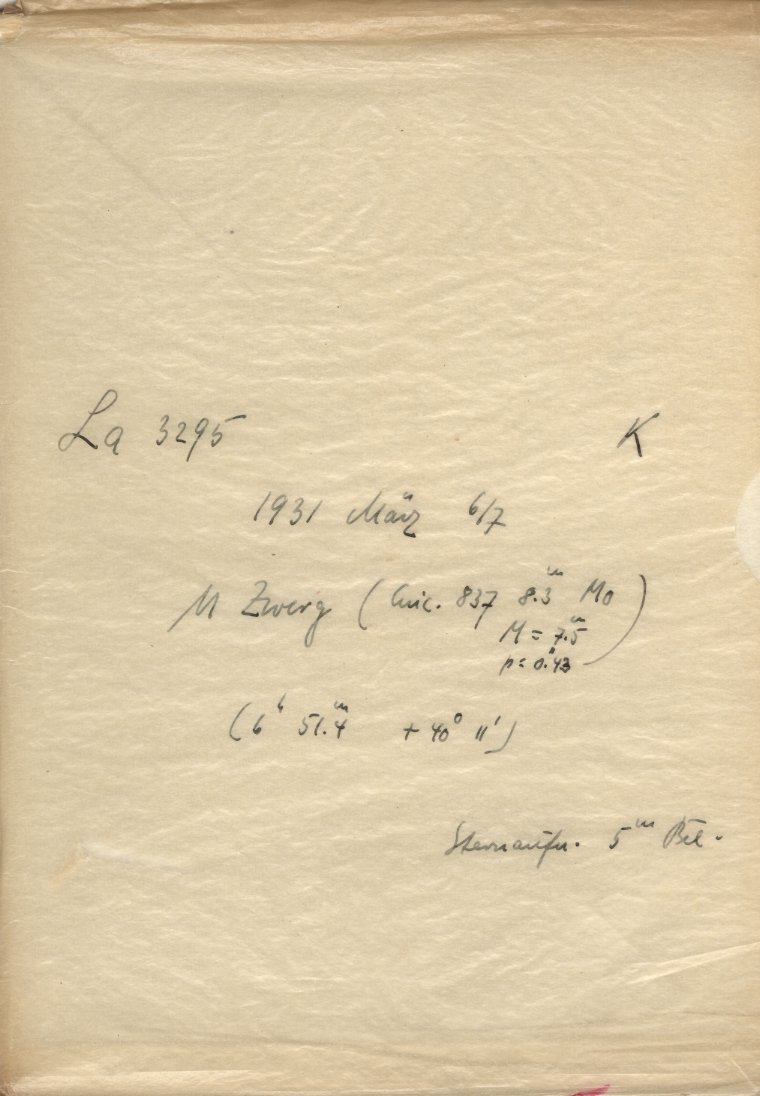 La 3295 K
1931 März 6/7
M Zwerg (Cinc. 837 8.3ᵐ M0
M = 7.5ᵐ
p = 0.″43)
(6ʰ 51.4ᵐ +40° 11′)
Sternaufn. 5ᵐ Bel.